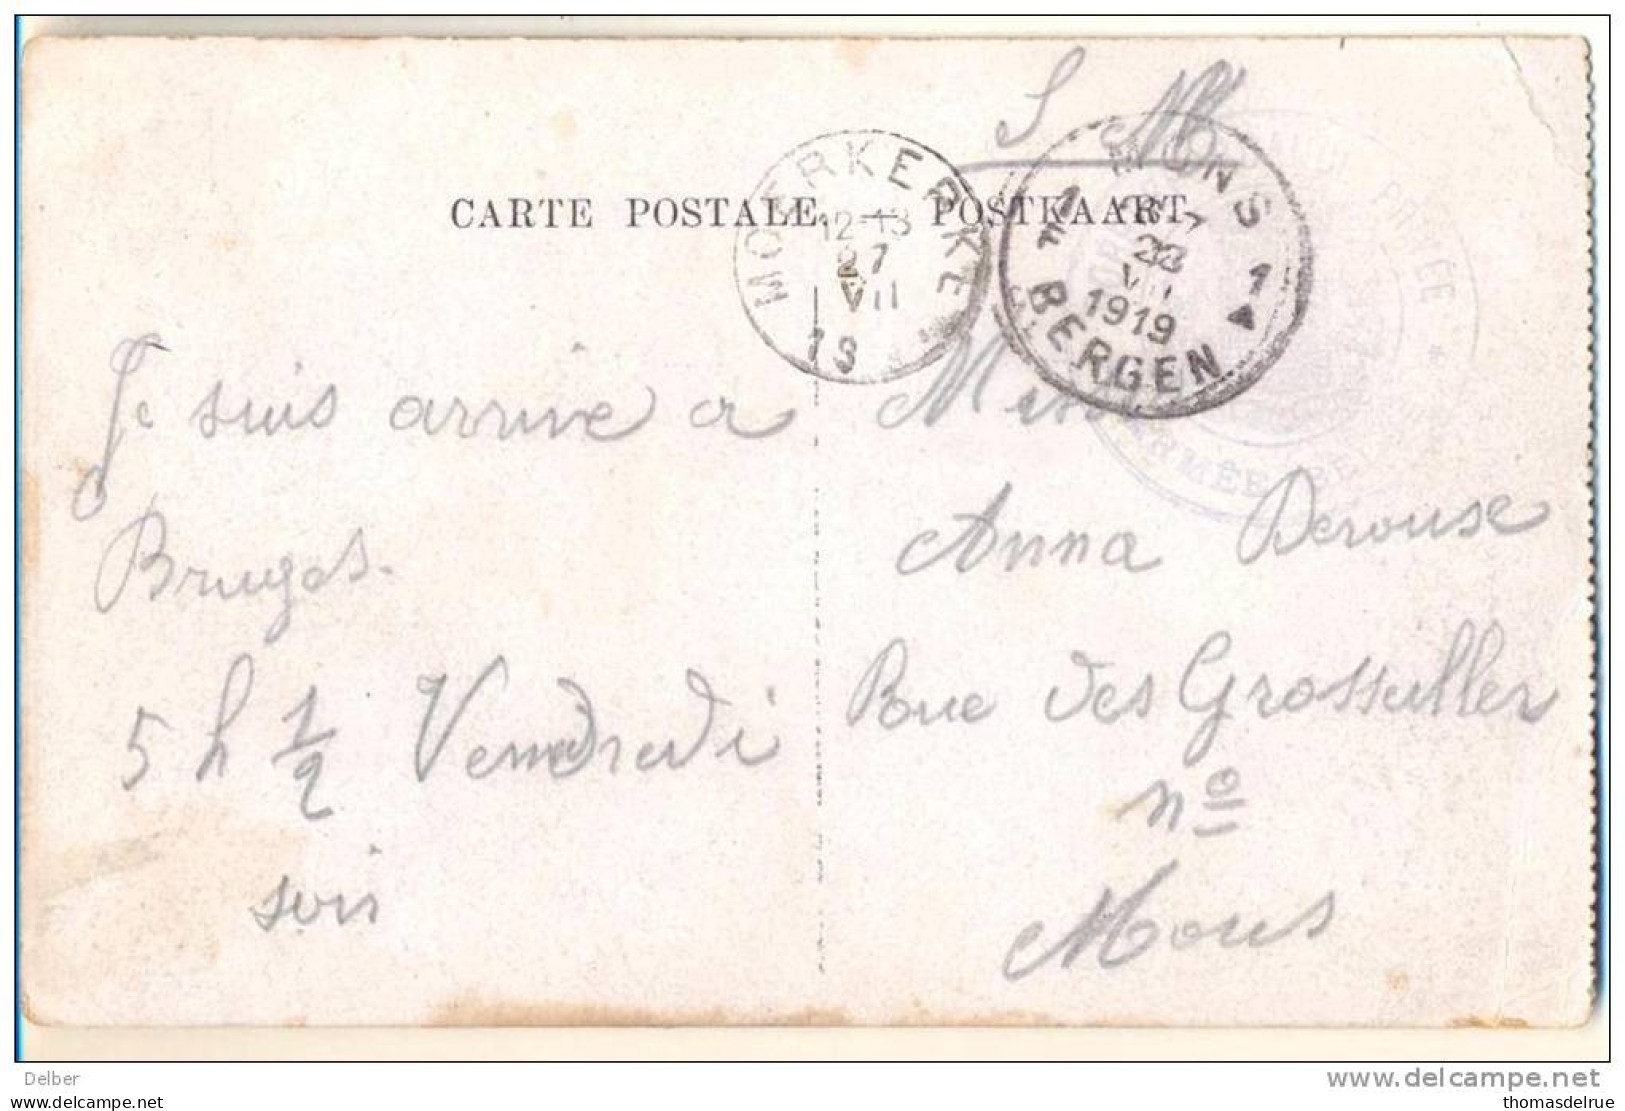 S M
CARTE POSTALE — POSTKAART
MOERKERKE
12-13
27
VII
19
MONS
1 1
VII
1919
BERGEN
PRIVÉE *
ARMÉE BEL
Je suis arrive a
Bruges.
5 h 1/2 Vendredi
soir
Miss
Anna Derouse
Rue des Grosseiller
nº
Mons
Delber
www.delcampe.net
yoann.com
thomasdelrue